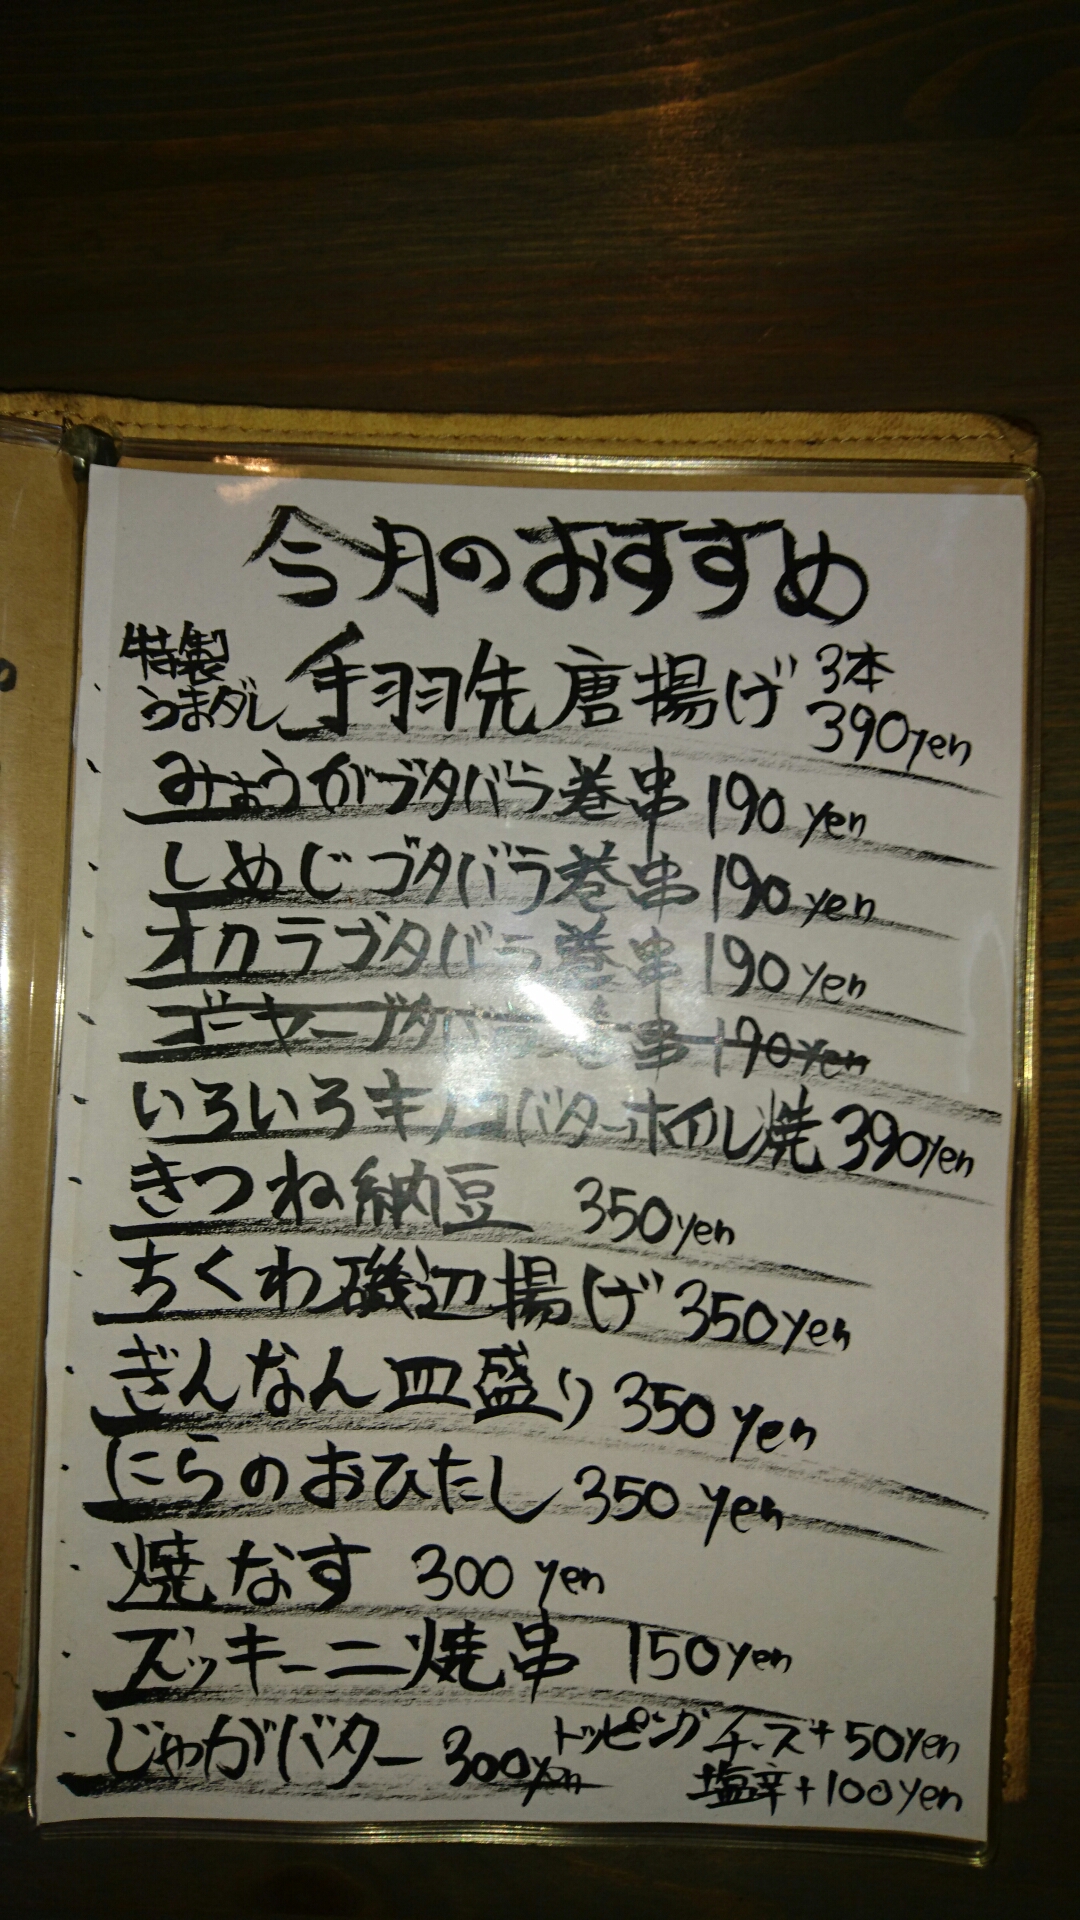 今月のおすすめ
特製
うまダレ 手羽先 唐揚げ 3本
390yen
みょうがブタバラ巻串 190 yen
しめじブタバラ巻串 190 yen
オクラブタバラ巻串 190 yen
ゴーヤーブタバラ巻串 190 yen
いろいろキノコバターホイル焼 390yen
きつね納豆 350yen
ちくわ磯辺揚げ 350yen
ぎんなん皿盛り 350 yen
にらのおひたし 350 yen
焼なす 300 yen
ズッキーニ焼串 150yen
じゃがバター 300yen トッピング チーズ+50yen
塩辛+100yen